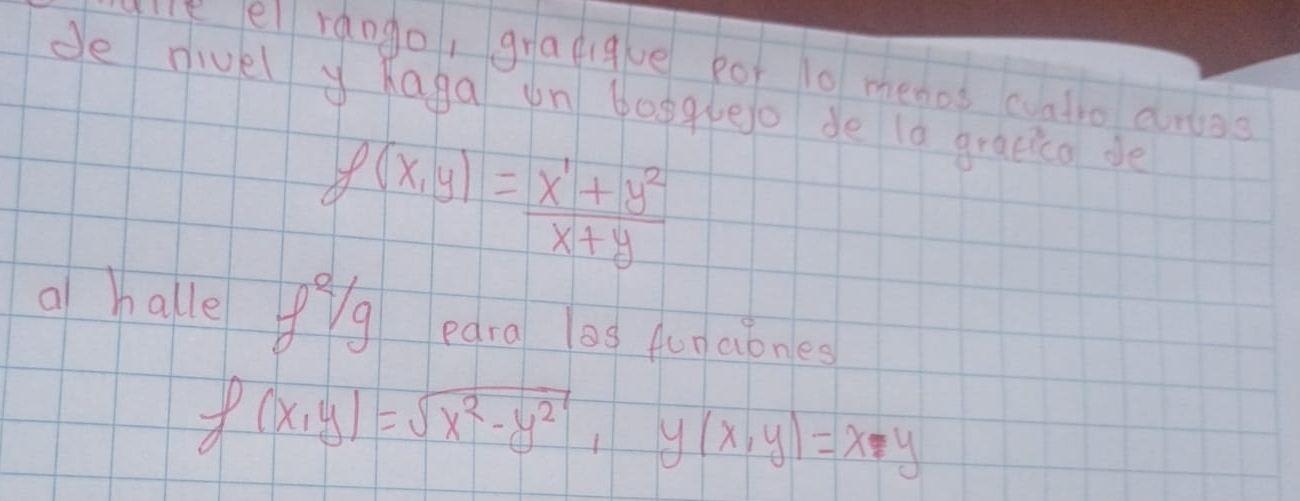 el rango, grafique por lo menos cuatro curvas
de nivel y haga un bosquejo de la grafica de
f(x,y) = x' + y² / x+y
a) halle f²/g para las funciones
f(x,y) = √x² - y² , y(x,y) = x-y